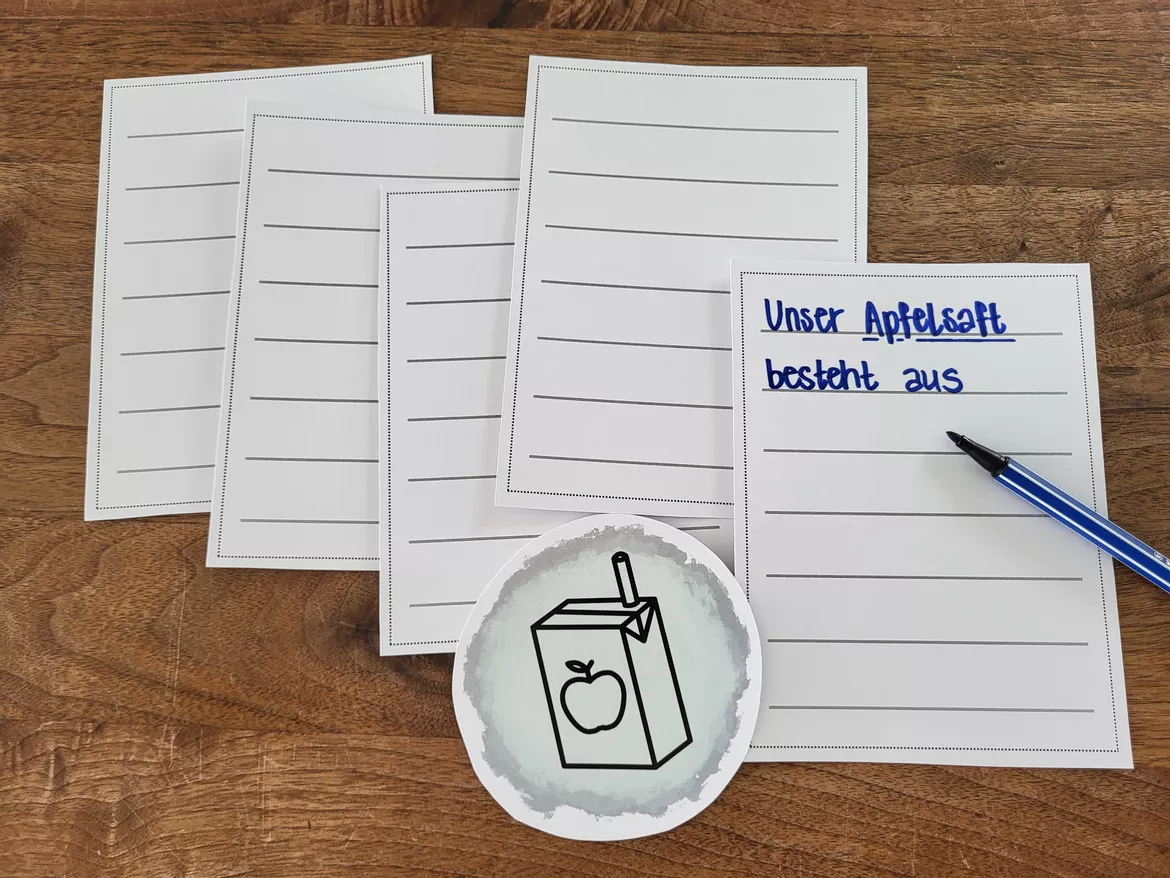 Unser Apfelsaft
besteht aus